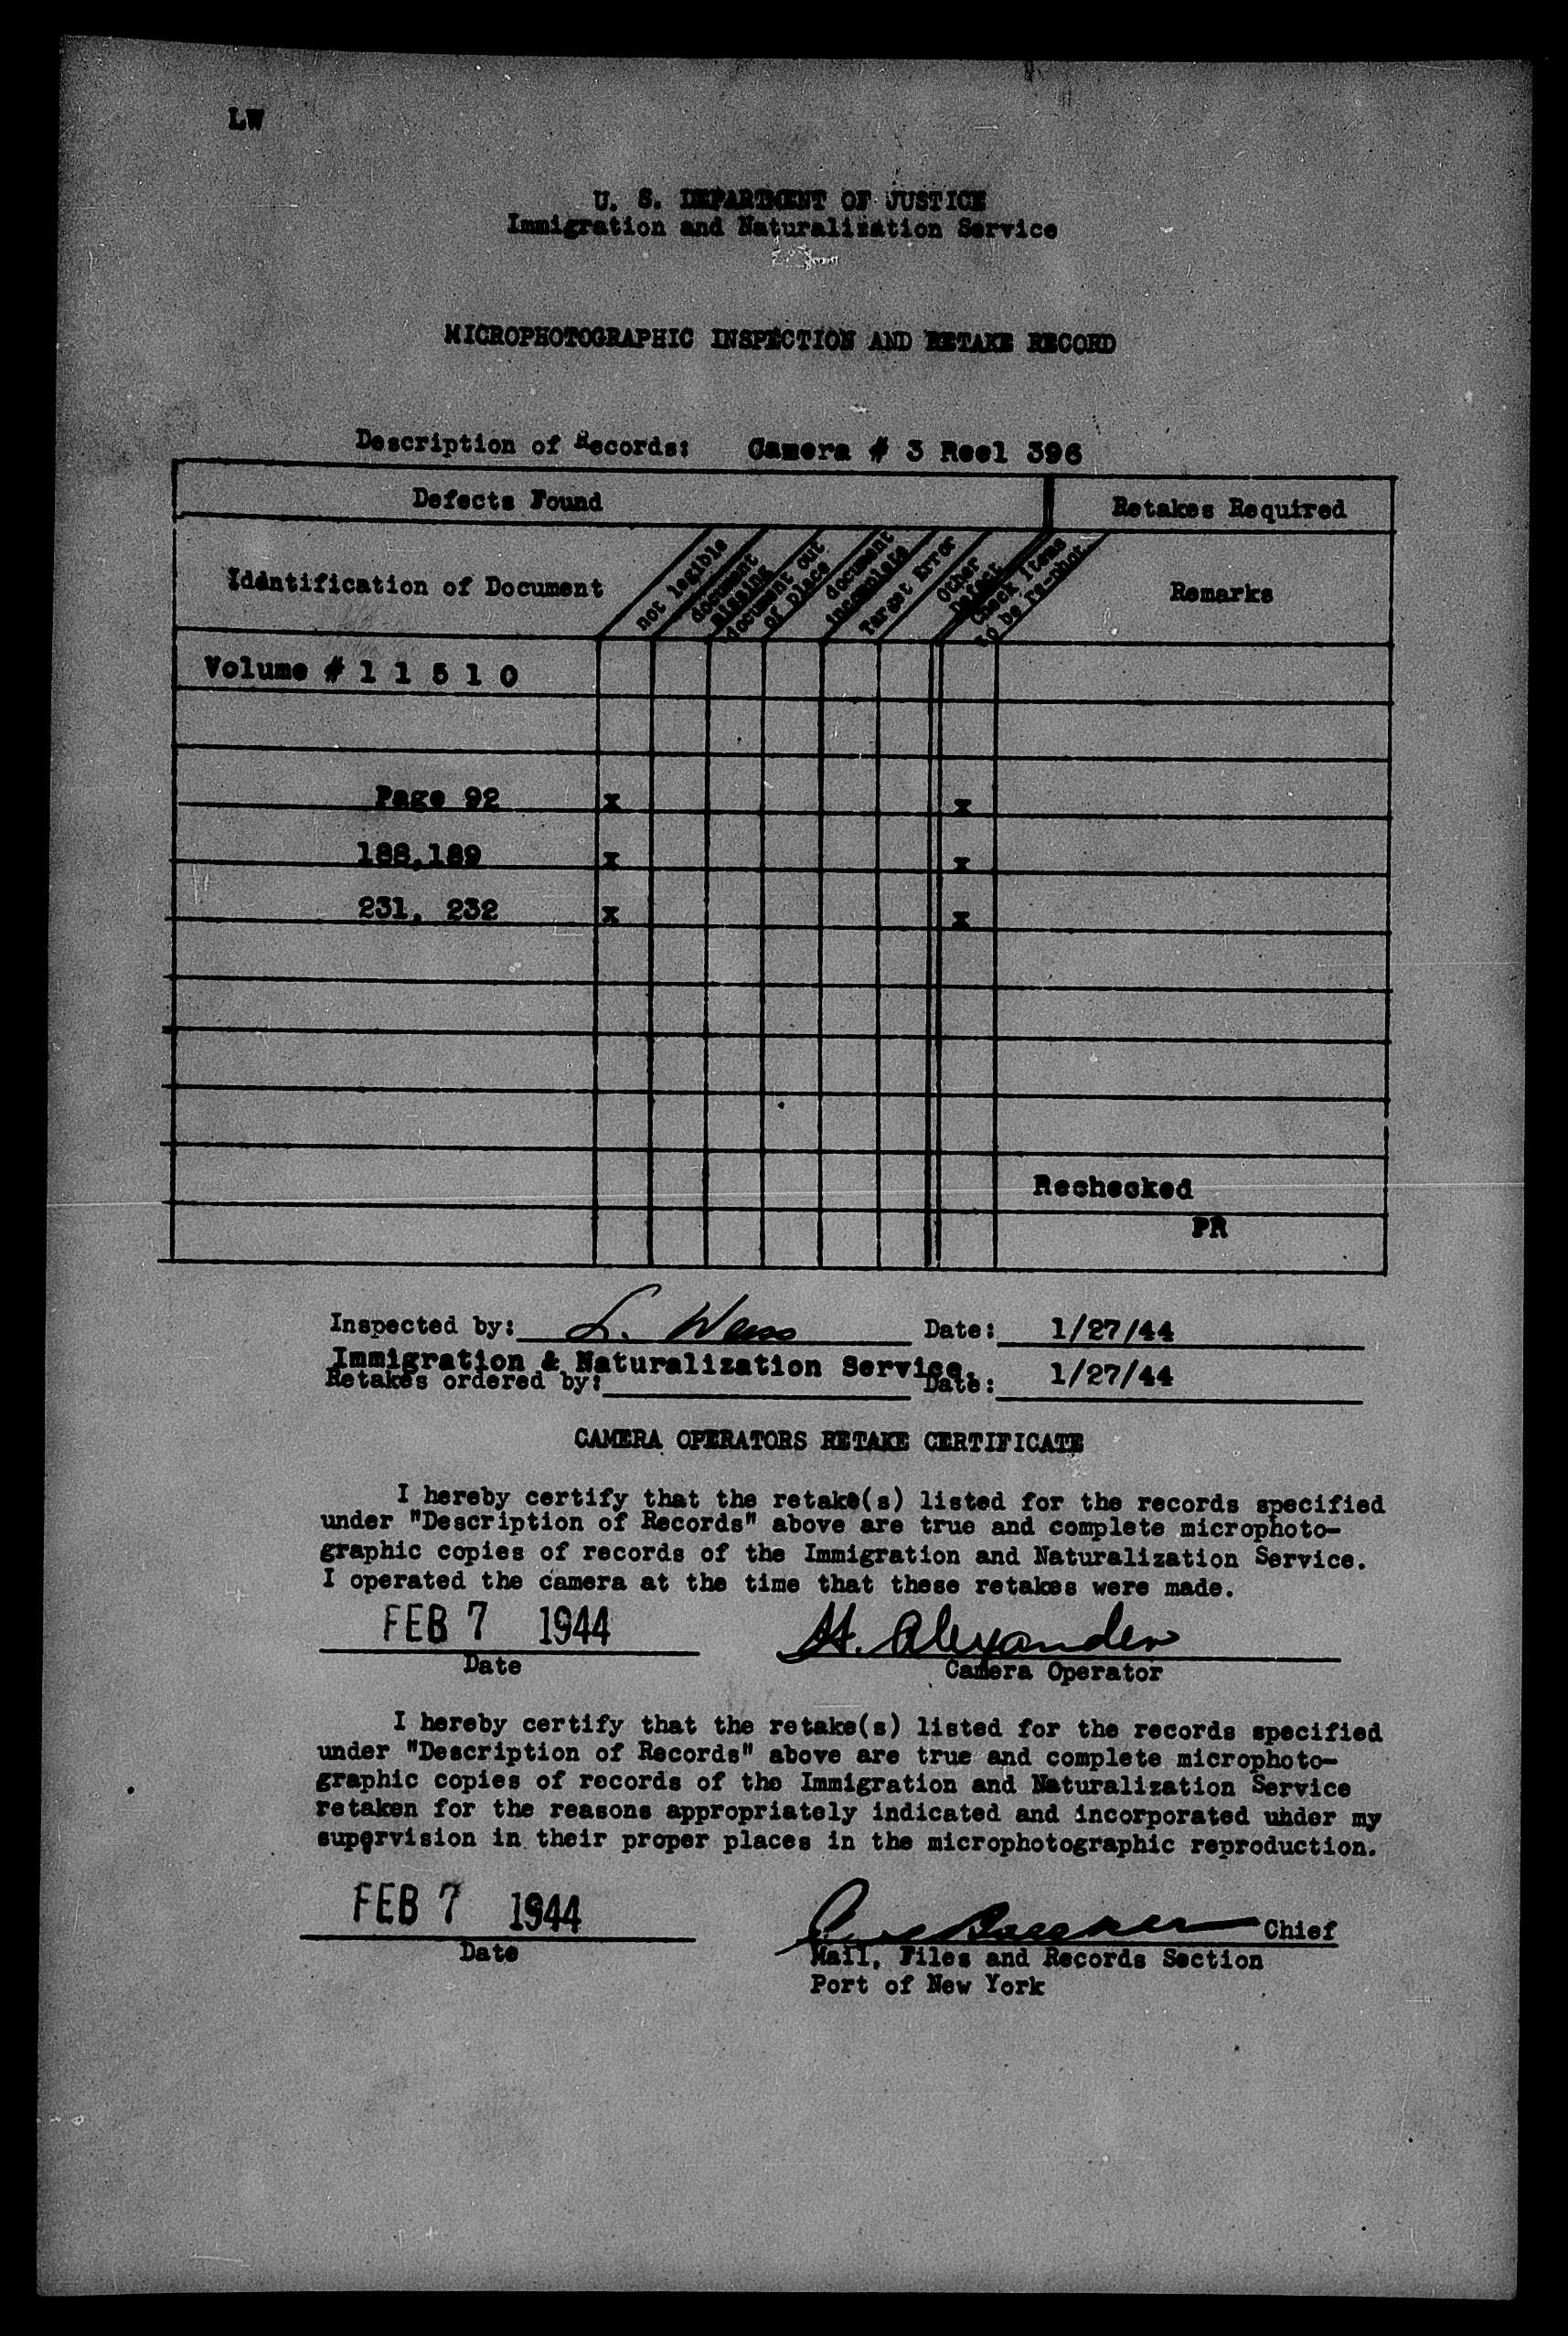 LW
U. S. DEPARTMENT OF JUSTICE
Immigration and Naturalization Service
MICROPHOTOGRAPHIC INSPECTION AND RETAKE RECORD
Description of Records: Camera # 3 Reel 396
Defects Found Retakes Required
Identification of Document
not legible
document missing
document out of place
document incomplete
Target Error
Other Defect
Check Items to be re-phot
Remarks
Volume # 1 1 5 1 0
Page 92 x x
188,189 x x
231, 232 x x
Rechecked
PR
Inspected by: L. Weiss Date: 1/27/44
Immigration & Naturalization Service.
Retakes ordered by: Date: 1/27/44
CAMERA OPERATORS RETAKE CERTIFICATE
I hereby certify that the retake(s) listed for the records specified
under "Description of Records" above are true and complete microphoto-
graphic copies of records of the Immigration and Naturalization Service.
I operated the camera at the time that these retakes were made.
FEB 7 1944 H. Alexander
Date Camera Operator
I hereby certify that the retake(s) listed for the records specified
under "Description of Records" above are true and complete microphoto-
graphic copies of records of the Immigration and Naturalization Service
retaken for the reasons appropriately indicated and incorporated under my
supervision in their proper places in the microphotographic reproduction.
FEB 7 1944 Chief
Date Mail, Files and Records Section
Port of New York